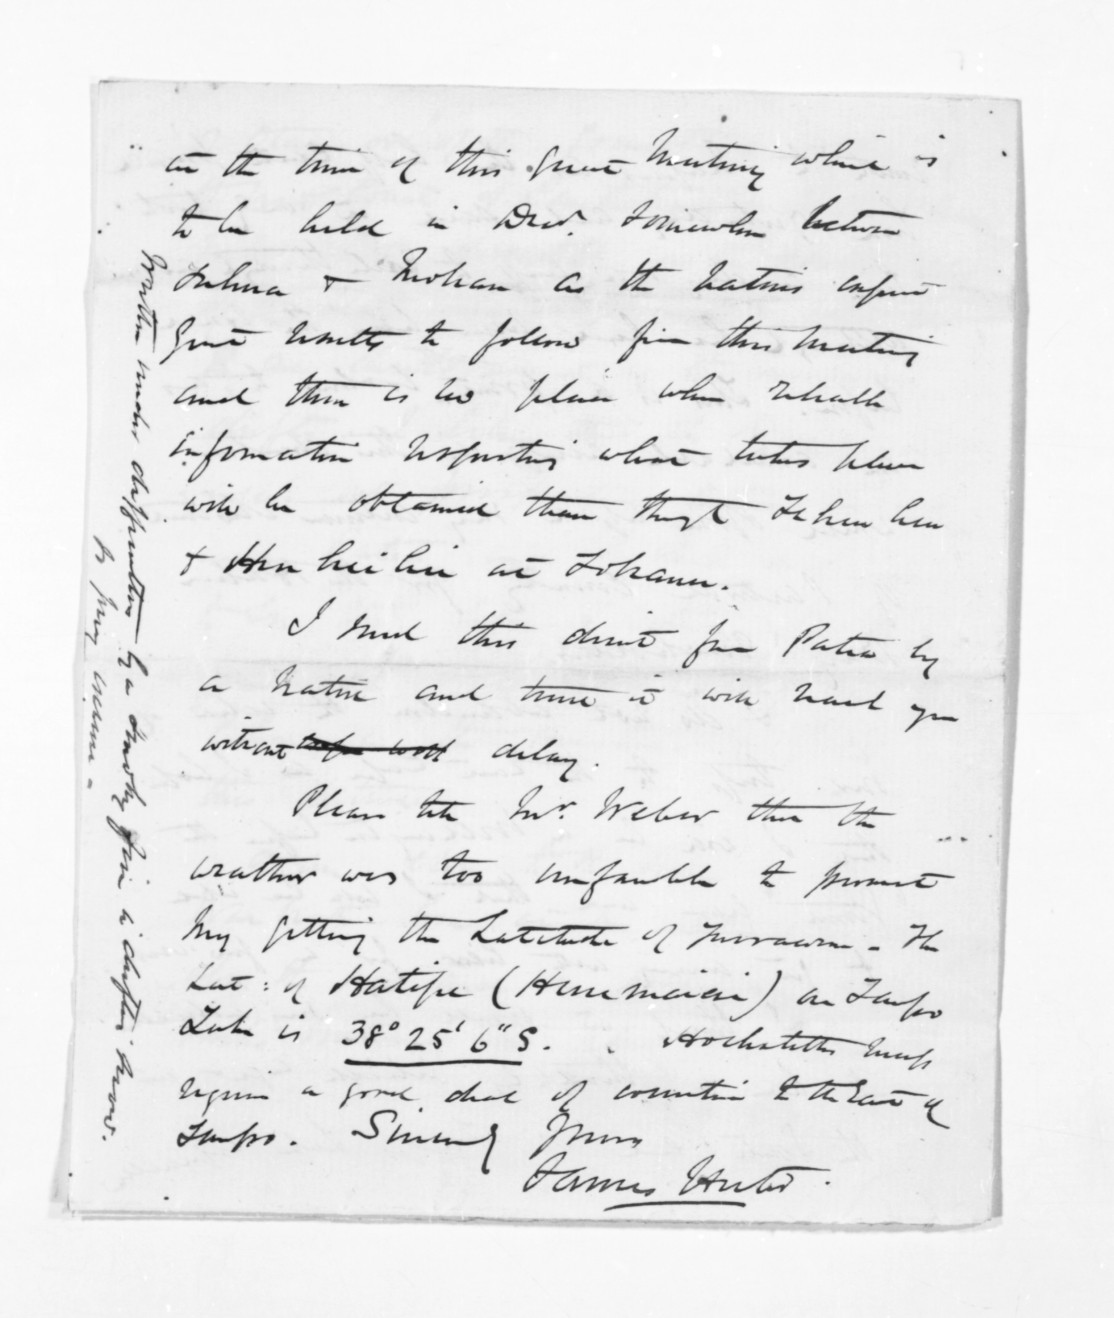 at the time of this great Meeting which is
to be held in Decr. somewhere between
Tuhua & Mokau as the Natives expect
great results to follow from this Meeting
and there is no place where reliable
information respecting what takes place
will be obtained than through
& at Tokanu.
I send this direct from Patea by
a Native and trust it will reach you
without delay.
Please tell Mr. Weber that the
weather was too unfavorable to permit
my getting the Latitude of The
Lat: of Hatepe (Hinemaiai) on Taupo
Lake is 38° 25' 6" S. Hochstetters Map
requires a good deal of correction to the East of
Taupo. Sincerely Yours
James Hunter
Written under difficulties by a Smoky fire in drifting Snow.
So pray excuse -